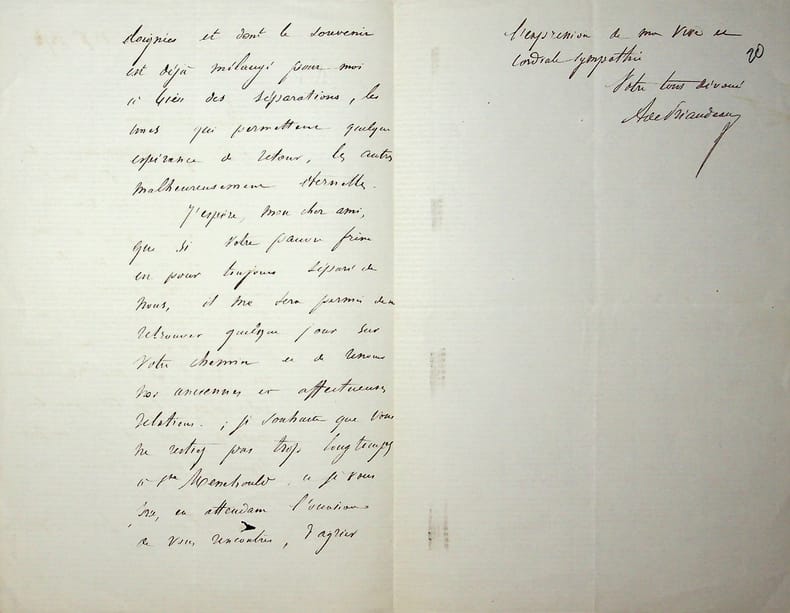 éloignées et dont le souvenir
est déjà mélangé pour moi
à bien des séparations, les
unes qui permettent quelque
espérance de retour, les autres
malheureusement éternelles.
J'espère, mon cher ami,
que si votre pauvre frère
est pour toujours séparé de
nous, il me sera permis de vous
retrouver quelque jour sur
votre chemin et de renouer
nos anciennes et affectueuses
relations. ; je souhaite que vous
ne restiez pas trop longtemps
à Ste Menehould et je vous
prie, en attendant l'occasion
de vous rencontrer, d'agréer
l'expression de ma vive et
cordiale sympathie
20
Votre tout dévoué